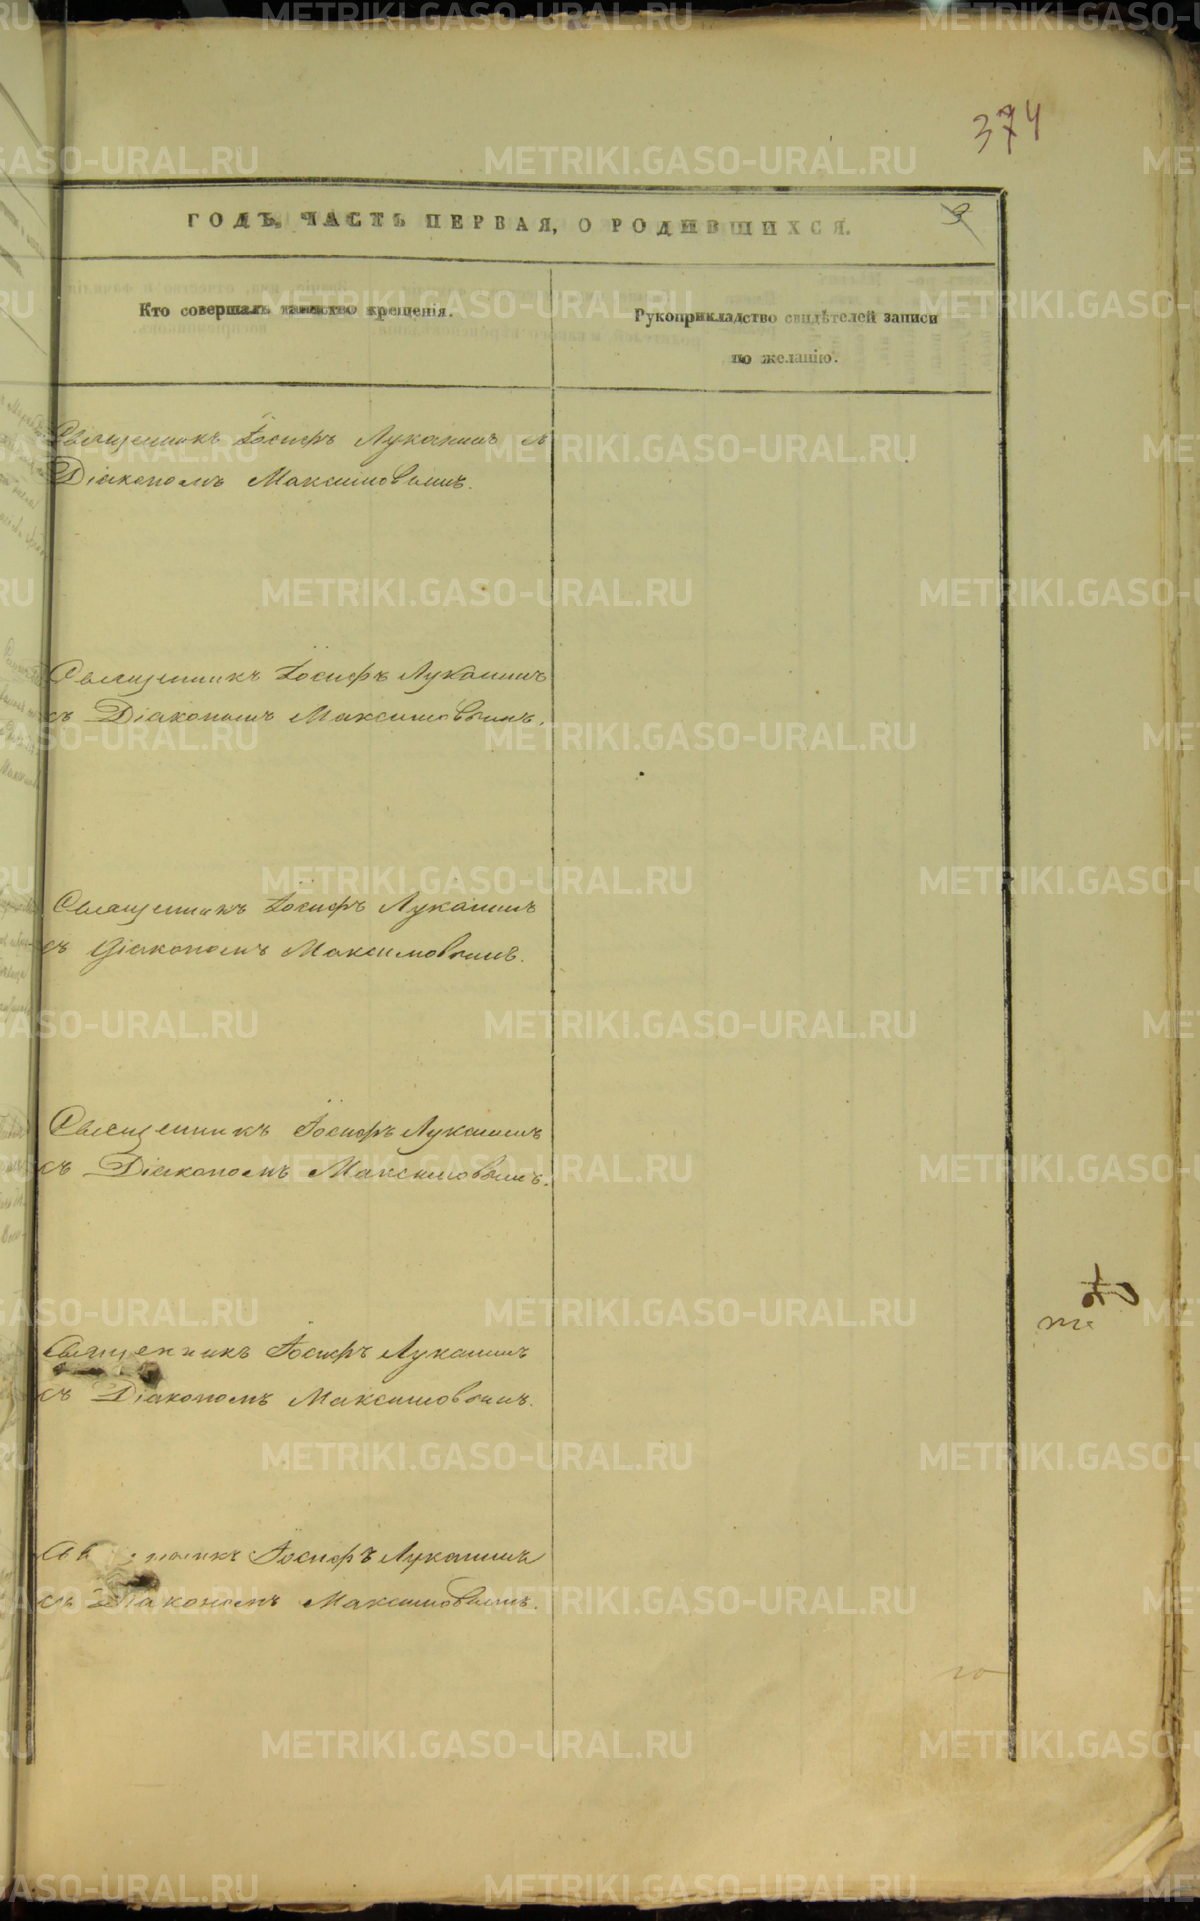 374
ГОДЪ, ЧАСТЬ ПЕРВАЯ, О РОДИВШИХСЯ.
9
Кто совершалъ таинство крещенія.
Рукоприкладство свидѣтелей записи
по желанію.
Священникъ Іосифъ Луканинъ съ
Діакономъ Максимовымъ.
Священникъ Іосифъ Луканинъ
съ Діакономъ Максимовымъ.
Священникъ Іосифъ Луканинъ
съ Діакономъ Максимовымъ.
Священникъ Іосифъ Луканинъ
съ Діакономъ Максимовымъ.
Священникъ Іосифъ Луканинъ
съ Діакономъ Максимовымъ.
Священникъ Іосифъ Луканинъ
съ Діакономъ Максимовымъ.
METRIKI.GASO-URAL.RU